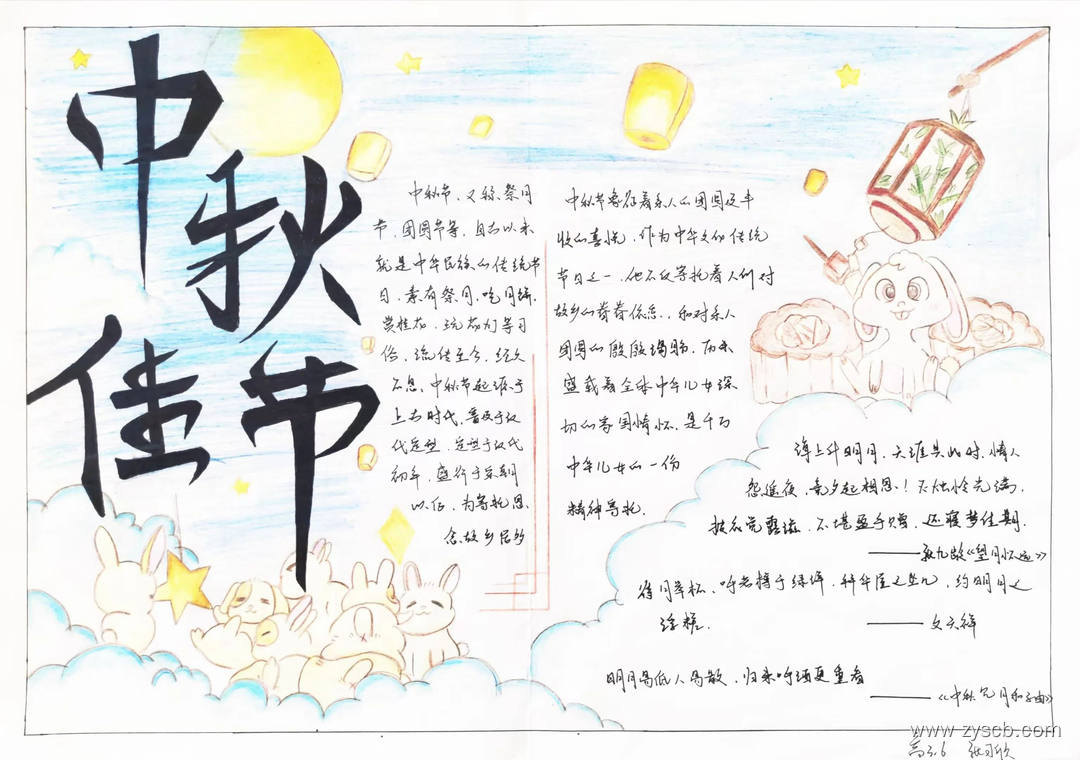 中秋佳节
中秋节，又称祭月
节、团圆节等，自古以来
就是中华民族的传统节
日，素有祭月、吃月饼、
赏桂花、玩花灯等习
俗，流传至今，经久
不息。中秋节起源于
上古时代，普及于汉
代定型，定型于汉代
初年，盛行于宋朝
以后，为寄托思
念故乡
中秋节象征着家人的团圆及丰
收的喜悦，作为中华文化传统
节日之一，他不仅寄托着人们对
故乡的眷眷依恋，和对家人
团圆的殷殷
盛载着全体中华儿女深
切的家国情怀，是千万
中华儿女的一份
精神寄托．
海上升明月，天涯共此时．情人
怨遥夜，竟夕起相思！灭烛怜光满，
披衣觉露滋．不堪盈手赠，还寝梦佳期．
——张九龄《望月怀远》
待月举杯，呼芳樽于绿绮，约明月之
浮槎．——文天祥
明月易低人易散，归来呼酒更重看
——《中秋见月和子由》
www.zyscb.com
高三.6